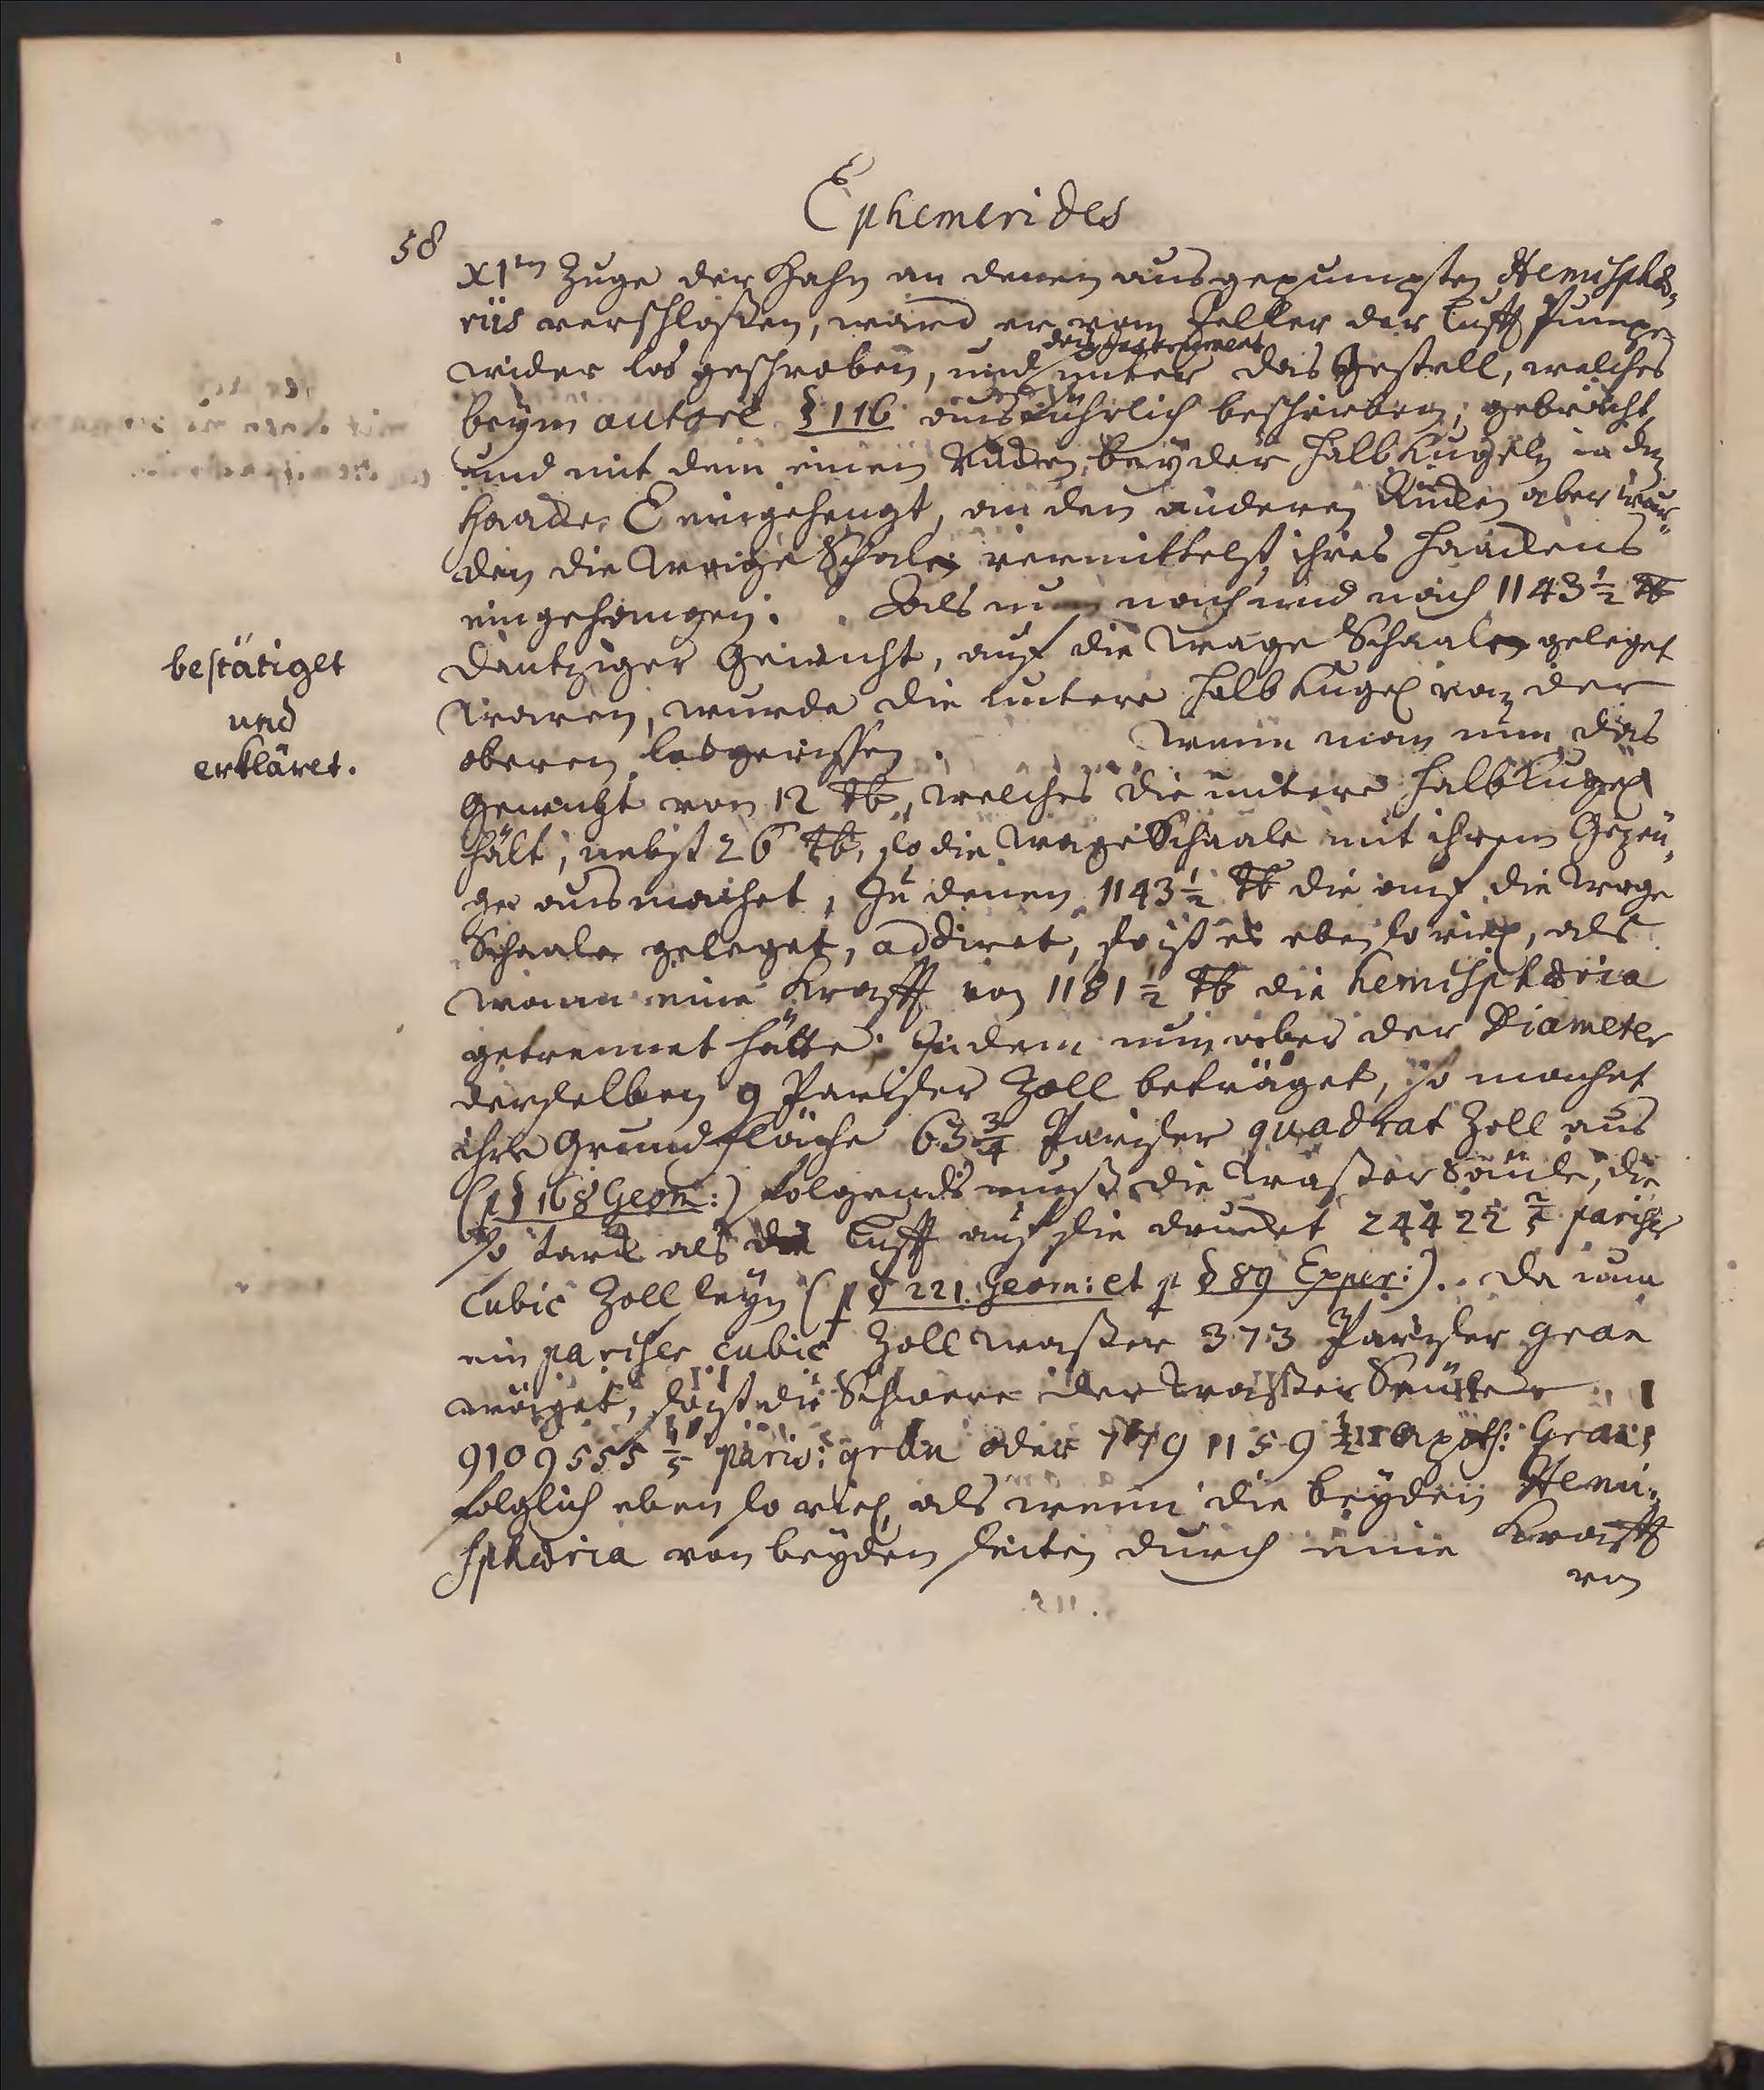 Ephemerides
58
XI ten Zuge der Hahn an denen ausgepumpten Hemisphæ„
riis verschloßen, ward er vom Teller der Lufft Pumpe
wider los geschroben, und unter das Gestell, welches
beÿm autore § 116 ausführlich beschrieben; gebracht,
und mit dem einen beÿder halb Kugeln in den
Haacken C eingehengt, an den anderen aber wur„
den die Wage Schale vermittelst ihres Haackens
eingehangen. Als nun nach und nach 1143 1/2 ℔
Dantziger Gewicht, auf die Wage Schaale geleget
waren, wurde die untere halb Kugel von der
oberen losgerissen. Wenn man nun das
Gewicht von 12 ℔, welches die untere halb Kugel
hält, nebst 26 ℔, so die Wage Schaale mit ihrem Gezeu„
ge ausmachet, zu denen 1143 1/2 ℔ die auf die Wage
Schaale geleget, addiret, so ist es eben so viel, als
wann eine Krafft von 1181 1/2 ℔ die hemisphæria
getrennet hätte. Indem nun aber der Diameter
derselben 9 Pariser Zoll beträget, so machet
ihre Grundfläche 63 3/4 Pariser quadrat Zoll aus
(p § 168 Geom:) folgends muß die Waßer Säule, die
so starck als die Lufft auf sie drucket 24422 2/5 pariser
Cubic Zoll seyn (p § 221. Geom: et p § 89 Exper:). Da nun
ein pariser cubic Zoll waßer 373 Pariser gran
wäget, so ist die Schwere der Waßer Säule
9109555 1/5 paris: gran oder 7791159 1/2 apoth: Gran;
folglich eben so viel, als wenn die beyden Hemi„
sphæria von beyden seiten durch eine Krafft
von
bestätiget
und
erkläret.